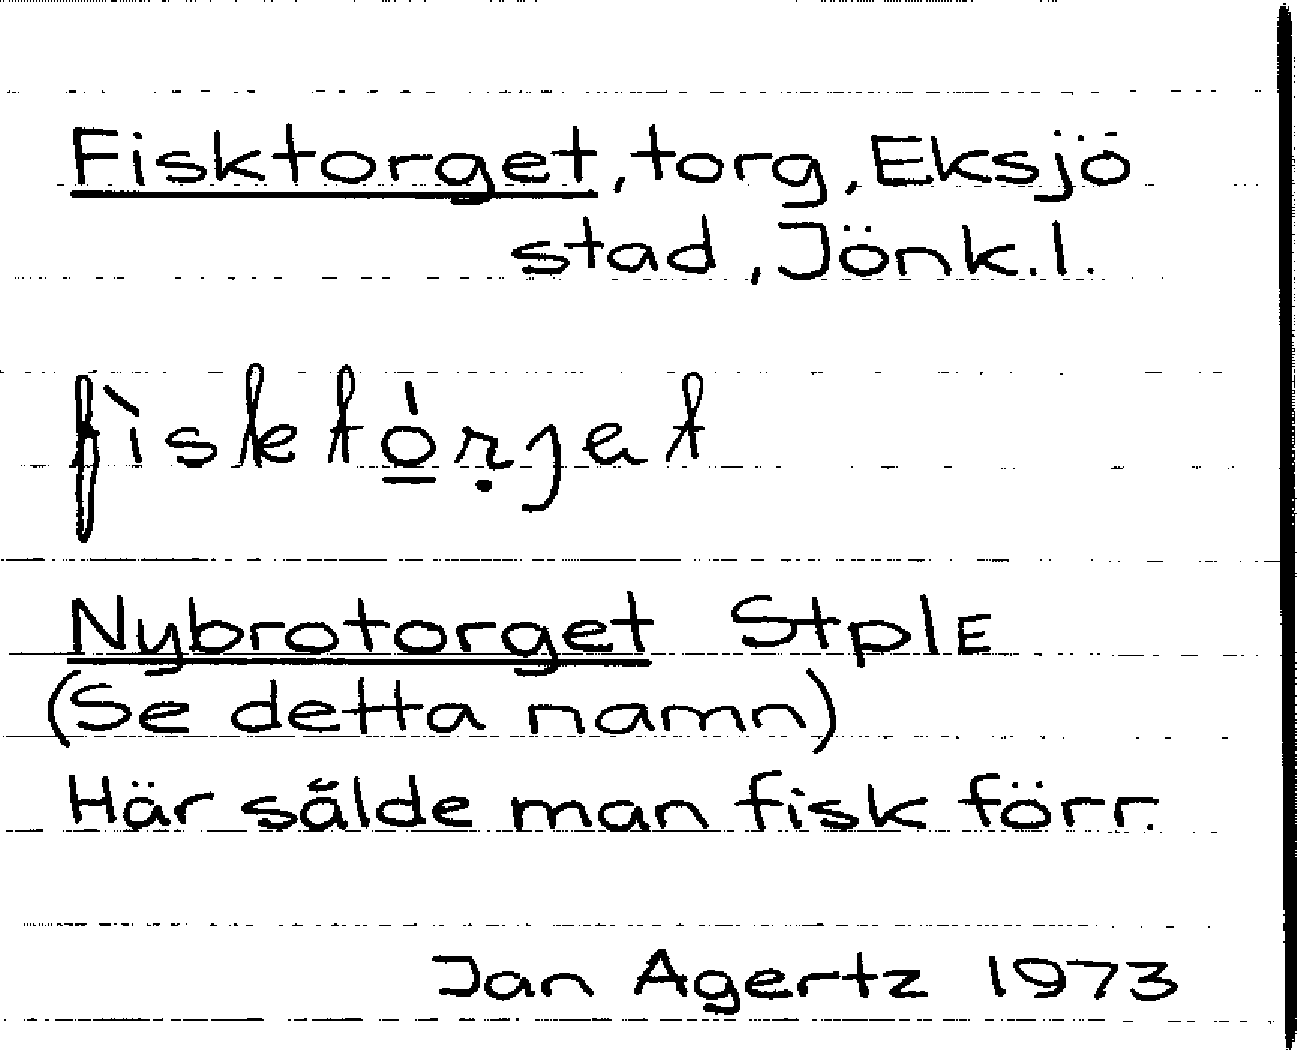 Fisktorget, torg, Eksjö
stad, Jönk.l.
fìsktó̲ṛjet
Nybrotorget StplE
(Se detta namn)
Här sålde man fisk förr.
Jan Agertz 1973